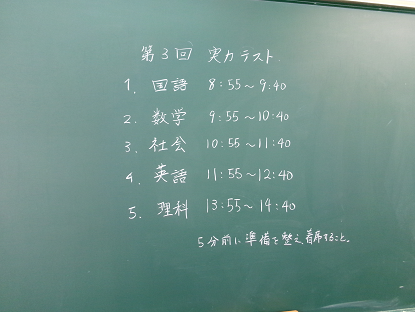 第3回 実力テスト
1. 国語 8:55～9:40
2. 数学 9:55～10:40
3. 社会 10:55～11:40
4. 英語 11:55～12:40
5. 理科 13:55～14:40
5分前に準備を整え、着席すること。